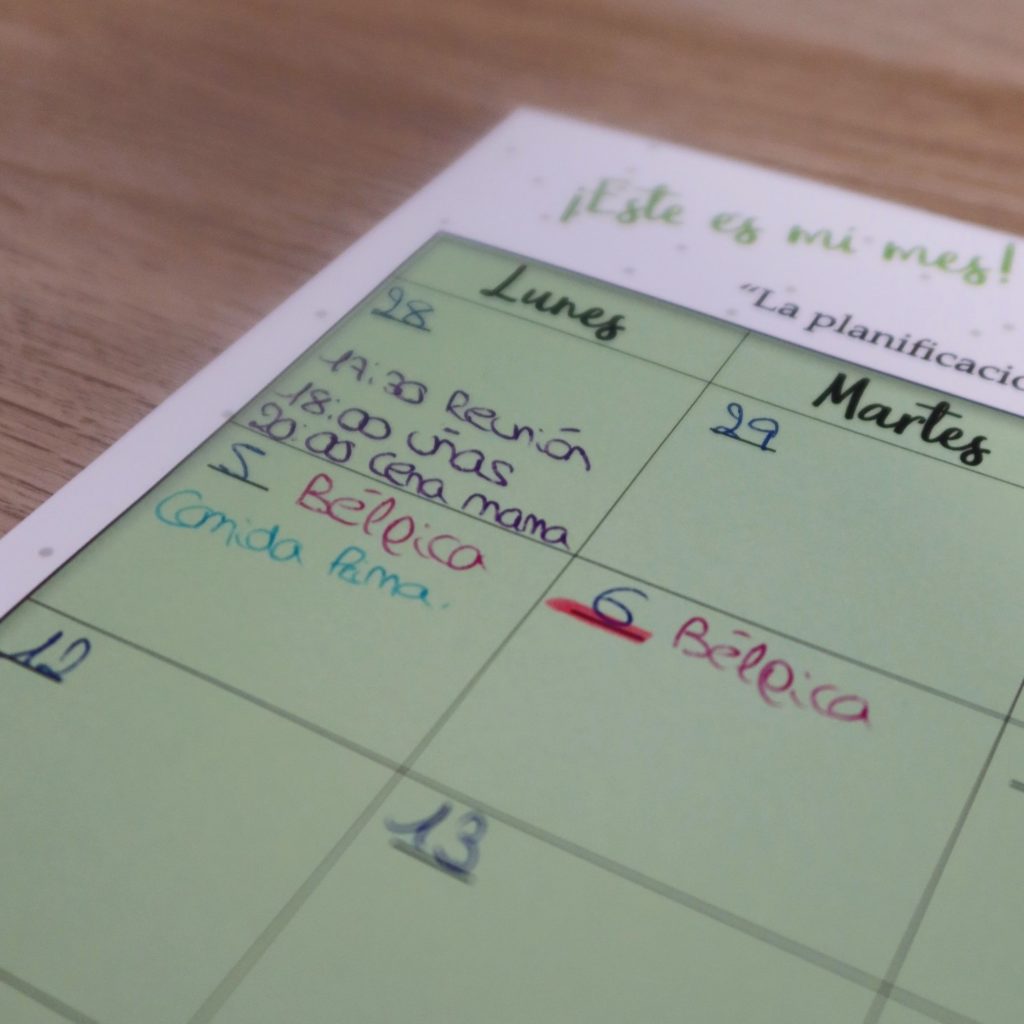 ¡Este es mi mes!
"La planificació
Lunes
Martes
28
17:30 Reunión
18:00 uñas
20:00 cena mama
29
5 Bélgica
Comida
6 Bélgica
12
13